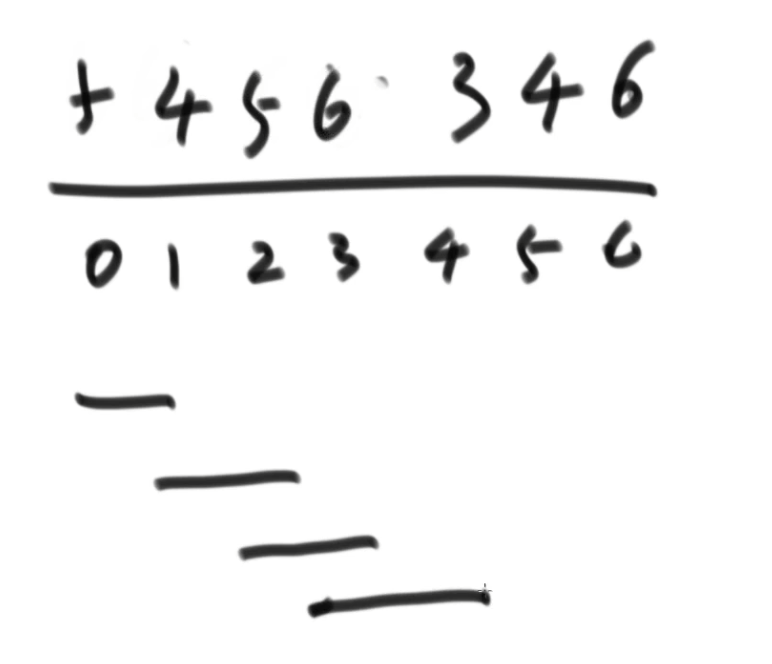 + 4 5 6 3 4 6
0 1 2 3 4 5 6